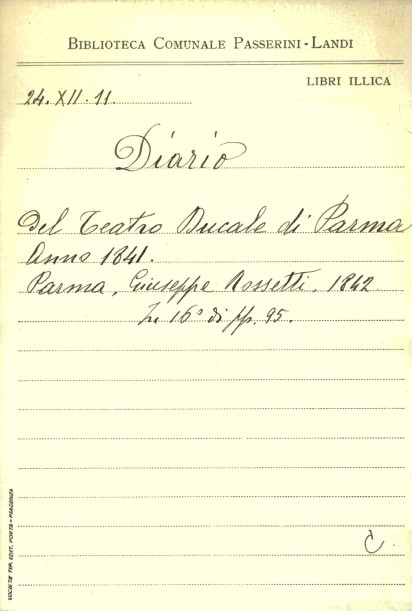 BIBLIOTECA COMUNALE PASSERINI-LANDI
LIBRI ILLICA
24. XII. 11.
Diario
del Teatro Ducale di Parma
Anno 1841.
Parma, Giuseppe Rossetti, 1842
In 16° di pp. 95.
C.
SOCIETÀ TIP. EDIT. PORTA - PIACENZA